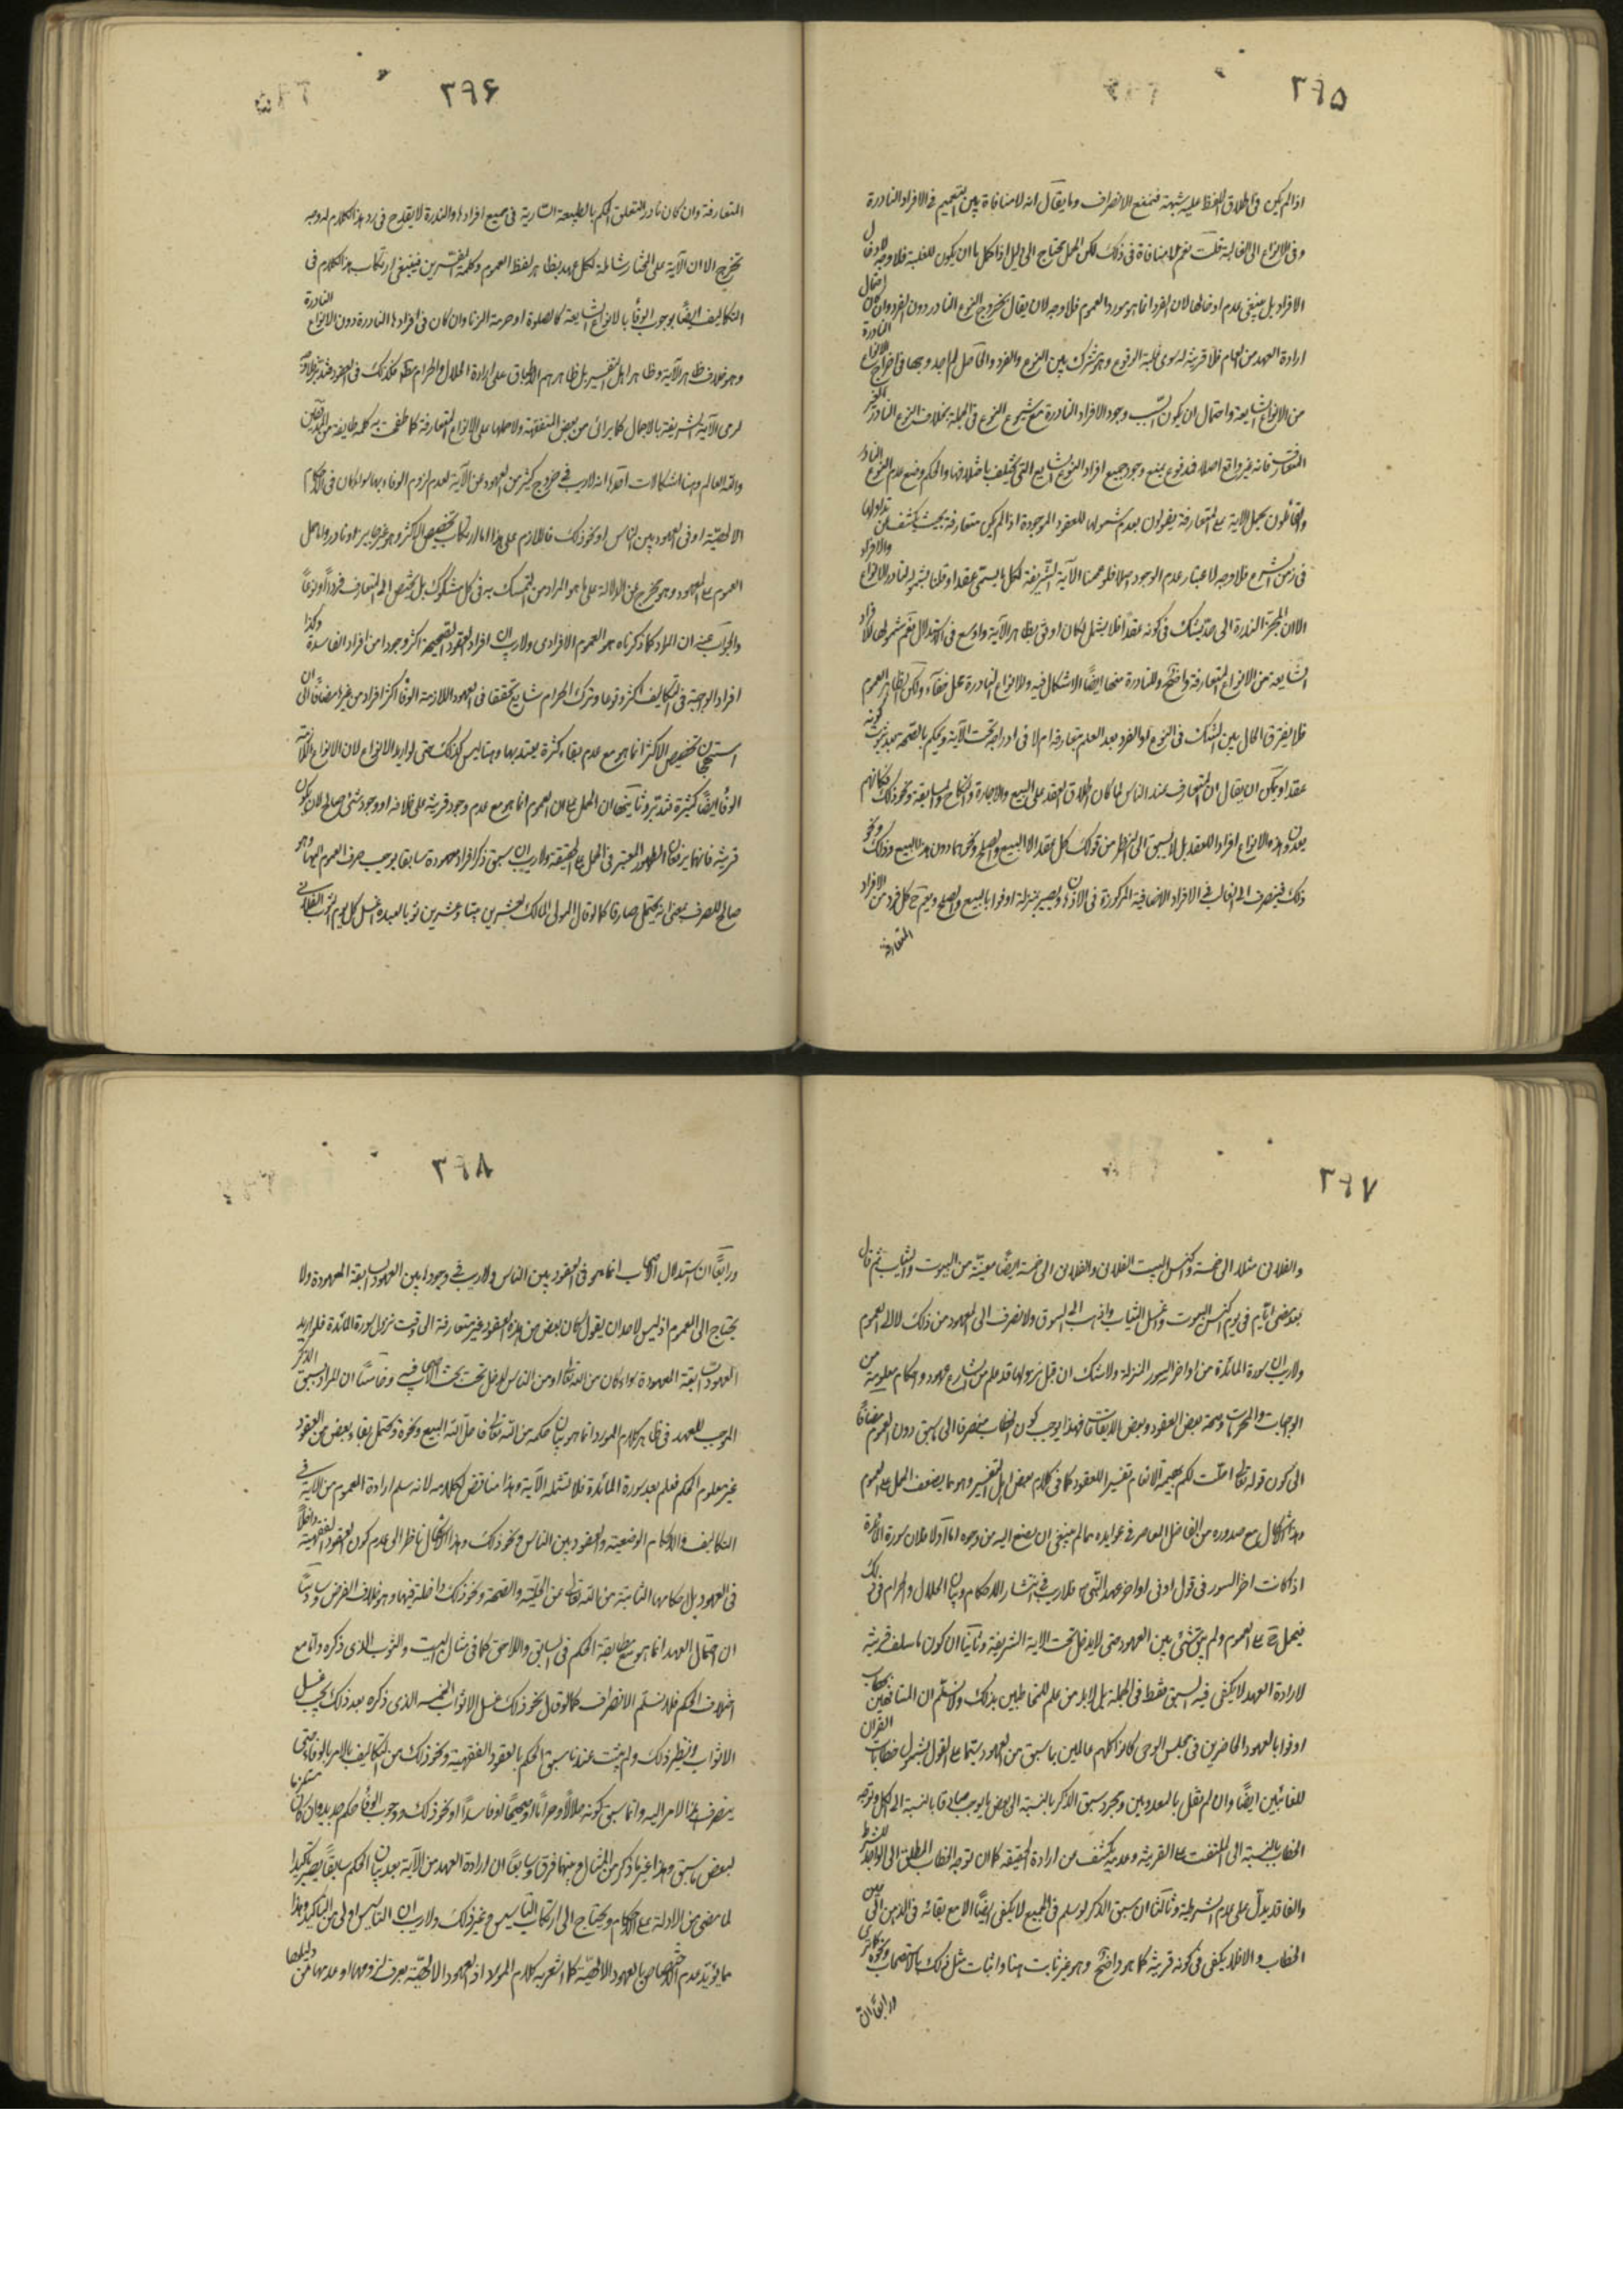 ۳۹۵
اذا لم يكن فى اطلاق اللفظ عليه شبهة فنمنع الانصراف وما يقال انه لا منافاة بين التعميم فى الافراد النادرة
وفى الانواع الى الغالبة قلت نعم لا منافاة فى ذلك لكن الحمل يحتاج الى دليل اذ الحكم اما ان يكون للغلبة فلا وجه
الافراد بل ينبغى عدم ادخالها لان الفرد انما هو مورد العموم فلا وجه لان يقال بخروج النوع النادر دون الفرد وان كان احتمال
ارادة العهد من العام فلا قرينة له سوى غلبة الوقوع وهو مشترك بين النوع والفرد والحاصل لم اجد وجها فى اخراج الانواع النادرة
من الانواع الشايعة واحتمال ان يكون السبب وجود الافراد النادرة مع شيوع النوع فى الجملة بخلاف النوع النادر الغير
المتعارف فانه غير واقع اصلا فمدفوع بمنع وجود جميع افراد النوع الشايع التى يختلف باختلافها والحكم ومنع عدم النوع النادر
والقائلون بحمل الاية على المتعارفة يقولون بعدم شمولها للعقود الموجودة اذا لم يكن متعارفة بحيث يكشف عن تداولها
فى زمن الشرع فلا وجه لاعتبار عدم الوجود اصلا فلو عممنا الآية الشريفة لكل ما يسمى عقدا وقلنا بشموله لنادر الانواع والافراد
الا ان انجر الندرة الى حد يشك فى كونه عقدا فلا يشمل لكان اوفق بظاهر الآية واوسع فى الاستدلال فعم شمولها للافراد
الشايعة من الانواع المتعارفة واضح وللنادرة منها ايضا لا اشكال فيه وللانواع النادرة محل خفاء ولكن الظاهر العموم
فلا يفرق الحال بين الشك فى النوع او الفرد بعد العلم بتعارفه ام لا فى اندراجه تحت الآية ويحكم بالصحة بعد ثبوت كونه
عقدا ويمكن ان يقال ان المتعارف عند الناس لما كان اطلاق العقد على البيع والاجارة والنكاح والسابقة ونحو ذلك فكانهم
يعدون هذه الانواع افرادا للعقد بل لا يسبق الى النظر من قولك كل عقد الا البيع والصلح ونحوهما دون هذا البيع وذلك ونحو
ذلك فينصرف الى الغالب فى الافراد الاضافية المركوزة فى الاذهان ويصير بمنزلة اوفوا بالبيع والصلح ويعم ح كل فرد من الافراد
المتعارفة
۳۹۶
المتعارفة وان كان نادرا لتعلق الحكم بالطبيعة السارية فى جميع افرادها والندرة لا يقدح فى رد هذا الكلام له وجه
تخرج الا ان الآية على المختار شاملة لكل عهد بظاهر لفظ العموم وكلمة المفسرين فينبغى ارتكاب هذا الكلام فى
التكاليف ايضا بوجوب الوفاء بالانواع الشايعة كالصلوة او حرمة الزنا وان كان فى افرادها النادرة دون الانواع النادرة
وهو خلاف ظاهر الآية وظاهر اهل التفسير بل ظاهرهم الاطباق على ارادة الحلال والحرام مطلقا فكذلك فى العقود فتدبر
لرمى الآية الشريفة بالاجمال كما يرائى من بعض المتفقهة ولا حملها على الانواع المتعارفة كما طفحت به كلمة طايفة من
والله العالم وهنا اشكالات احدها انه لا ريب فى خروج كثير من العهود عن الآية لعدم لزوم الوفاء بها سواء كان فى الاحكام
الالهية او فى العهود بين الناس او نحو ذلك فاللازم على هذا اما ارتكاب تخصيص الاكثر وهو غير جايز او نادر واما حمل
العموم على المعهود وهو يخرج عن الدلالة على ما هو المراد من التمسك به فى كل مشكوك بل يختص الى المتعارف فردا او نوعا
والجواب عنه ان المراد كما ذكرناه هو العموم الافرادى ولا ريب ان افراد العقود الصحيحة اكثر وجودا من افراد الفاسدة وكذا
افراد الواجبة فى التكاليف اكثر وقوعا وترك الحرام شايع تحققا فى العهود اللازمة الوفاء اكثر افراد من غيرها مضافا الى ان
استهجان تخصيص الاكثر انما هو مع عدم بقاء كثرة يعتد بها وهنا ليس كذلك حتى لو اريد الانواع لان الانواع اللازمة
الوفاء ايضا كثيرة فتدبر وثانيها ان الحمل على العموم انما هو مع عدم وجود قرينة على خلافه او وجود شئ صالح لان يكون
قرينة فانهما يرفعان الظهور المعتبر فى الحمل على الحقيقة ولا ريب ان سبق ذكر افراد معهودة سابقا يوجب صرف العموم اليها وهو
صالح للصرف بمعنى انه يحتمل صارفا كما لو قال المولى المالك لعشرين بيتا وعشرين ثوبا لعبده اغسل كل يوم الثوب الفلانى
۳۹۷
والفلانى مثلا الى خمسة واكنس البيت الفلانى والفلانى الى خمسة ايضا معينة من البيوت والثياب ثم قال
بعد مضى ايام فى يوم اكنس البيوت واغسل الثياب واذهب الى السوق ولا نصرف الى المعهود من ذلك لا الى العموم
ولا ريب ان سورة المائدة من اواخر السور المنزلة ولا شك ان قبل نزولها قد علم من الشارع عهود واحكام معلومة من
الواجبات والمحرمات وصحة بعض العقود وبعض الايقاعات فهذا يوجب كون الخطاب منصرفا الى ما سبق دون العموم مضافا
الى كون قوله تعالى احلت لكم بهيمة الانعام تفسيرا للعقود كما فى كلام بعض اهل التفسير وهو مما يضعف الحمل على العموم
وهذا الاشكال مع صدوره من الفاضل المعاصر فى عوايده مما لم ينبغى ان يصغ اليه من وجوه اما اولا فلان سورة المائدة
اذا كانت اخر السور فى قول او فى اواخر عهد النبى ص فلا ريب فى انتشار الاحكام وبيان الحلال والحرام فى ذلك
فيحمل ح على العموم ولم يبق شئ بين العهود حتى لا يدخل تحت الاية الشريفة وثانيا ان كون ما سلف قرينة
لارادة العهد لا يكفى فيه السبق فقط فى الجملة بل لابد من علم المخاطبين بذلك ولا نسلم ان المشافهين بخطاب
اوفوا بالعهود الحاضرين فى مجلس الوحى كانوا كلهم عالمين بما سبق من العهود سيما على القول بشمول خطابات القران
للغائبين ايضا وان لم نقل بالمعدومين ومجرد سبق الذكر بالنسبة الى بعض لا يوجب صارفا بالنسبة الى الكل وتوجه
الخطاب بالنسبة الى الملتفت على القرينة وعدمه يكشف عن ارادة الحقيقة كما ان توجه الخطاب المطلق الى الواجد للشرط
والفاقد يدل على عدم الشرطية وثالثا ان سبق الذكر لو سلم فى الجميع لا يكفى ايضا الا مع بقائه فى الذهن الى حين
الخطاب والا فلا يكفى فى كونه قرينة كما هو واضح وهو غير ثابت هنا واثبات مثل ذلك بالاستصحاب ونحوه كما ترى
ورابعا ان
۳۹۸
ورابعا ان استدلال الاصحاب انما هو فى العقود بين الناس ولا ريب فى وجودها بين العهود السابقة المعهودة ولا
يحتاج الى العموم اذ ليس لاحد ان يقول كان بعض من هذه العقود غير متعارفة الى وقت نزول سورة المائدة فلو اريد
العهود السابقة المعهودة سواء كان من الله تعالى او من الناس لدخل تحت بحث الاصحاب فيه وخامسا ان المراد بسبق الذكر
الموجب للعهد فى ظاهر كلام المورد انما هو بيان حكمه من الله تعالى فاحل الله البيع ونحوه ويحتمل بقاء بعض من العقود
غير معلوم الحكم فعلم بعد سورة المائدة فلا تشمله الآية وهذا مناقض لكلامه لانه سلم ارادة العموم من الآية فى
التكاليف والاحكام الوضعية والعقود بين الناس ونحو ذلك وهذا الاشكال ناظر الى عدم كون العقود الفقهية داخلا
فى العهود بل احكامها الثابتة من الله تعالى من الحلية والصحة ونحو ذلك داخلة فيها وهو خلاف الفرض وسادسا
ان احتمال العهد انما هو مع مطابقة الحكم فى السابق واللاحق كما فى مثال البيت والثوب الذى ذكره واما مع
اختلاف الحكم فلا نسلم الانصراف كما لو قال بخو ذلك غسل الاثواب الخمسة الذى ذكره بعد ذلك يجب غسل
الاثواب ونظير ذلك ولم يثبت عندنا سبق الحكم بالعقود الفقهية ونحو ذلك من التكاليف بالامر بالوفاء حتى
ينصرف هذا الامر اليه وانما سبق كونه حلالا وحراما او صحيحا او فاسدا او نحو ذلك ووجوب الوفاء حكم جديد وان كان مستلزما
لبعض ما سبق وهذا غير ما ذكر من المثال وبينهما فرق وسابعا ان ارادة العهد من الآية بعد بيان الحكم سابقا يصير تاكيدا
لما مضى من الادلة على الاحكام ويحتاج الى ارتكاب التاسيس فى غير ذلك ولا ريب ان التاسيس اولى من التاكيد وهذا
مما يؤيد عدم الاختصاص بالعهود الالهية كما اشعر به كلام المورد اذ العهود الالهية يعرف لزومها او عدمها من دليلها